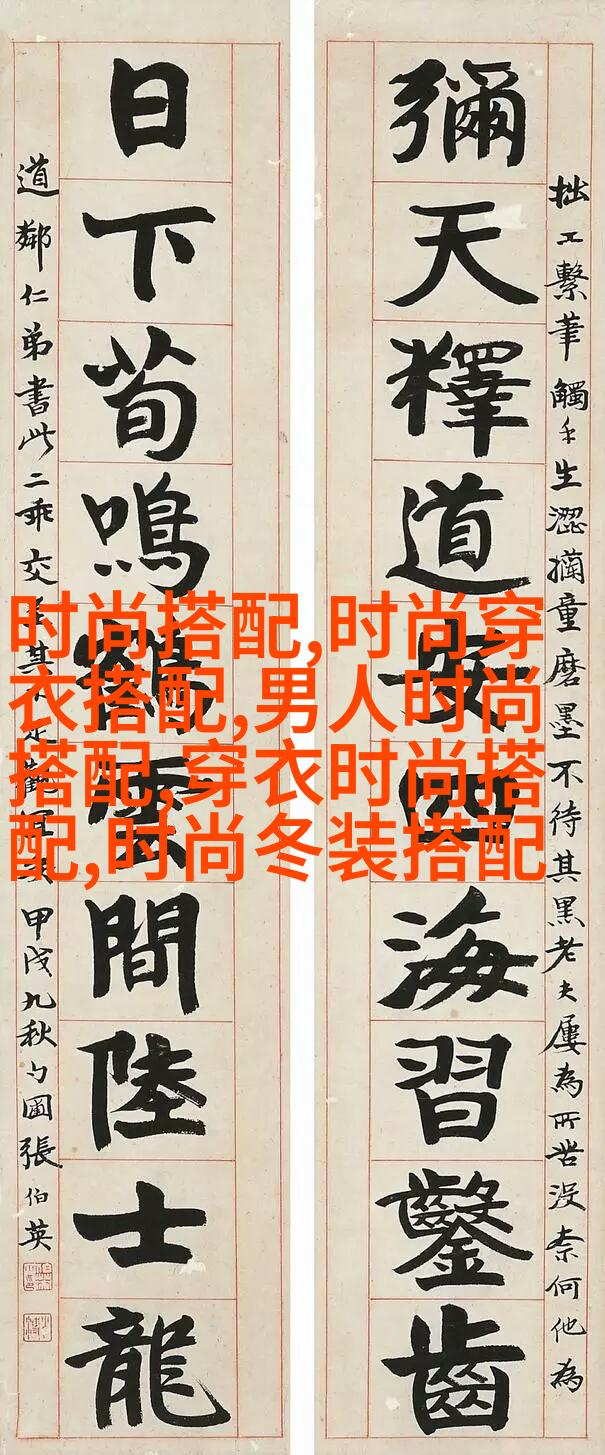 拙工繫筆觸手生澀童磨墨不待其黑老夫屢為所苦沒柰何他為
彌天釋道安四海習鑿齒
日下荀鳴鶴雲間陸士龍
道鄰仁弟書此二乖交其甲戌九秋勺圃張伯英
时尚搭配,时尚穿
衣搭配,男人时尚
搭配,穿衣时尚搭
配,时尚冬装搭配